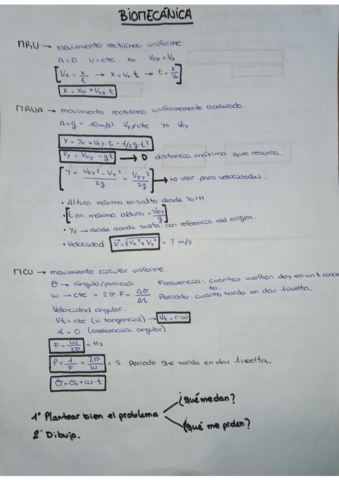 BIOMECÁNICA
MRU → movimiento rectilíneo uniforme.
a=0 v=cte x₀ V₀ₓ=Vₓ
[Vₓ = x/t → x=Vₓ·t → t = x/Vₓ]
x = x₀ + V₀ₓ·t
MRUA → movimiento rectilíneo uniformemente acelerado.
Y = Y₀ + V₀y·t - 1/2 g·t²
Vy = V₀y - gt → 0 distancia máxima que recorra.
[Y = V₀y² - Vy² / 2g = V₀y² / 2g] → no usar para velocidades.
• Altura máxima en salto desde Y₀+H
• t en máxima altura = V₀y/g
desde donde salta con referencia del origen.
• Velocidad V=√Vₓ²+Vy² = ? m/s
MCU → movimiento circular uniforme.
θ → ángulo/posición Frecuencia: cuantas vueltas doy en un t concreto
ω → cte = 2π·F = Δθ/Δt Periodo: cuanto tardo en dar 1 vuelta.
Velocidad angular.
Vt = cte (v. tangencial) → Vt = r·ω
α = 0 (aceleración angular)
F = ω/2π = Hz
P = 1/F = 2π/ω = s Periodo que tardo en dar 1 vuelta.
θ = θ₀ + ω·t
1º Plantear bien el problema
¿Qué me dan?
¿Qué me piden?
2º Dibujo.